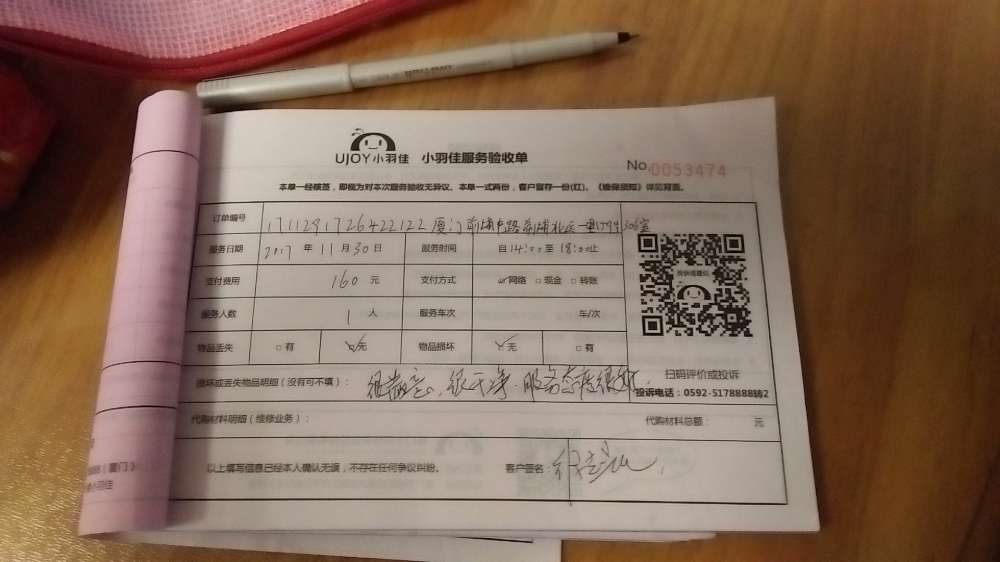 UJOY小羽佳 小羽佳服务验收单
No.0053474
本单一经核签，即视为对本次服务验收无异议。本单一式两份，客户留存一份(红)。《维保须知》详见背面。
订单编号 171129172642212 厦门
服务日期 2017 年 11 月 30 日 服务时间 自 14:00 至 18:00 止
支付费用 160 元 支付方式 ☑网络 □现金 □转账
投诉或建议
服务人数 1 人 服务车次 车/次
物品丢失 □有 ☑无 物品损坏 ☑无 □有
损坏或丢失物品明细（没有可不填）： 很满意。很干净.服务态度很好.
扫码评价或投诉
投诉电话：0592-5178888转2
代购材料明细（维修业务）： 代购材料总额： 元
以上填写信息已经本人确认无误，不存在任何争议纠纷。 客户签名：
（厦门）
小羽佳